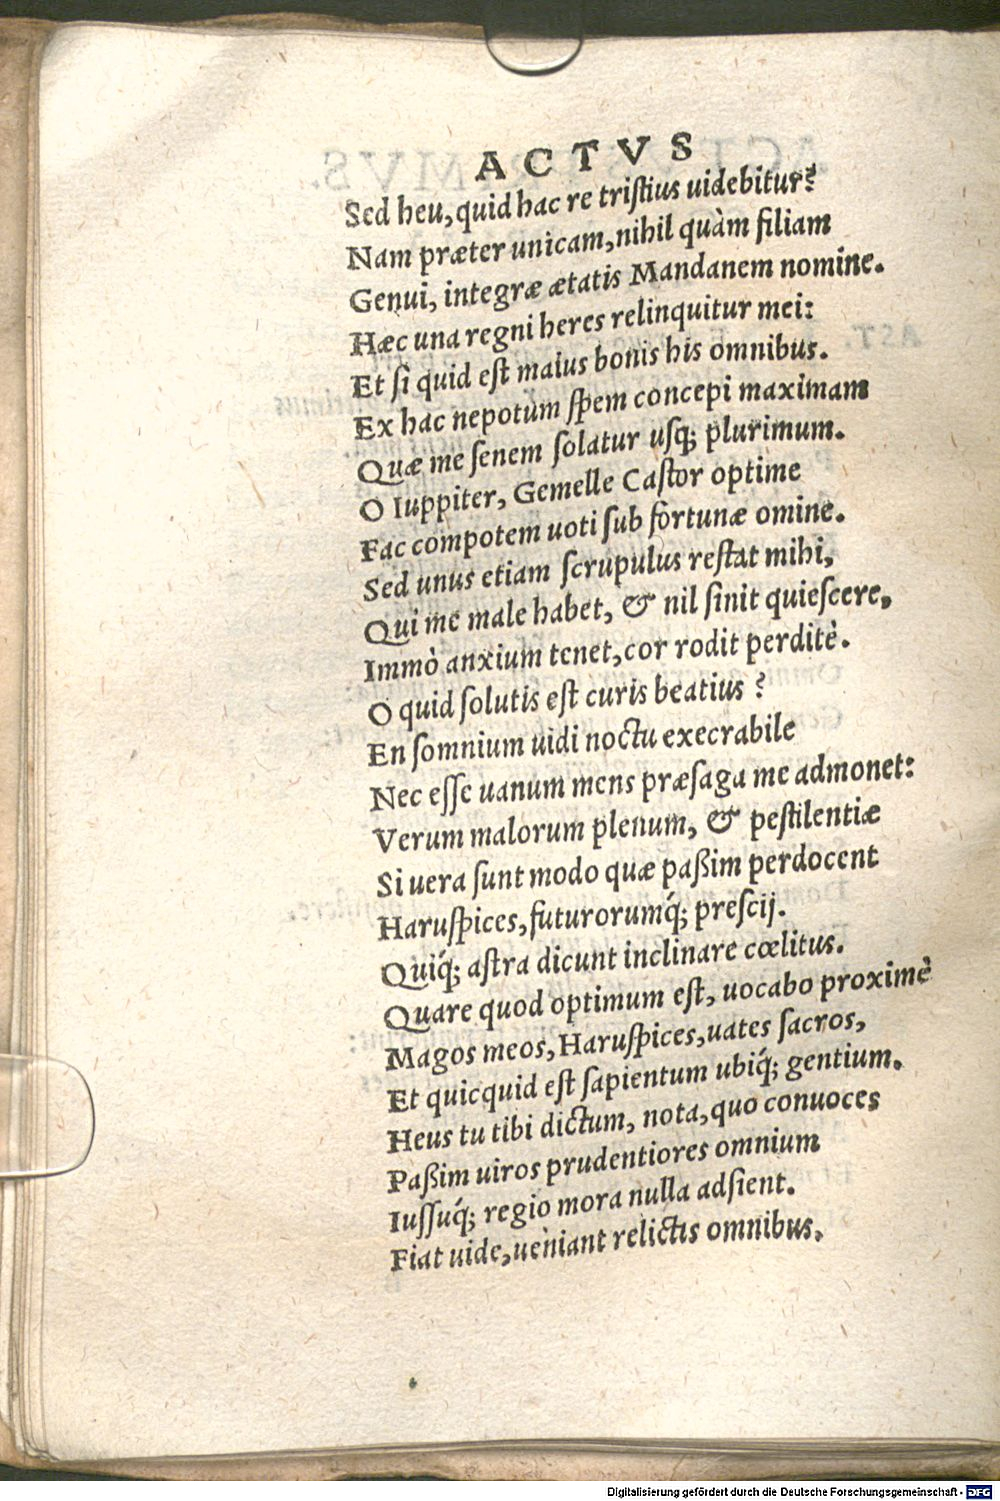 ACTVS
Sed heu, quid hac re tristius uidebitur?
Nam præter unicam, nihil quàm filiam
Genui, integræ ætatis Mandanem nomine.
Hæc una regni heres relinquitur mei:
Et si quid est maius bonis his omnibus.
Ex hac nepotum spem concepi maximam
Quæ me senem solatur usq; plurimum.
O Iuppiter, Gemelle Castor optime
Fac compotem uoti sub fortunæ omine.
Sed unus etiam scrupulus restat mihi,
Qui me male habet, & nil sinit quiescere,
Immò anxium tenet, cor rodit perditè.
O quid solutis est curis beatius?
En somnium uidi noctu execrabile
Nec esse uanum mens præsaga me admonet:
Verum malorum plenum, & pestilentiæ
Si uera sunt modo quæ paßim perdocent
Haruspices, futurorumq́; prescij.
Quiq́; astra dicunt inclinare cœlitus.
Quare quod optimum est, uocabo proximè
Magos meos, Haruspices, uates sacros,
Et quicquid est sapientum ubiq́; gentium.
Heus tu tibi dictum, nota, quo conuoces
Paßim uiros prudentiores omnium
Iussuq́; regio mora nulla adsient.
Fiat uide, ueniant relictis omnibus.
Digitalisierung gefördert durch die Deutsche Forschungsgemeinschaft - DFG